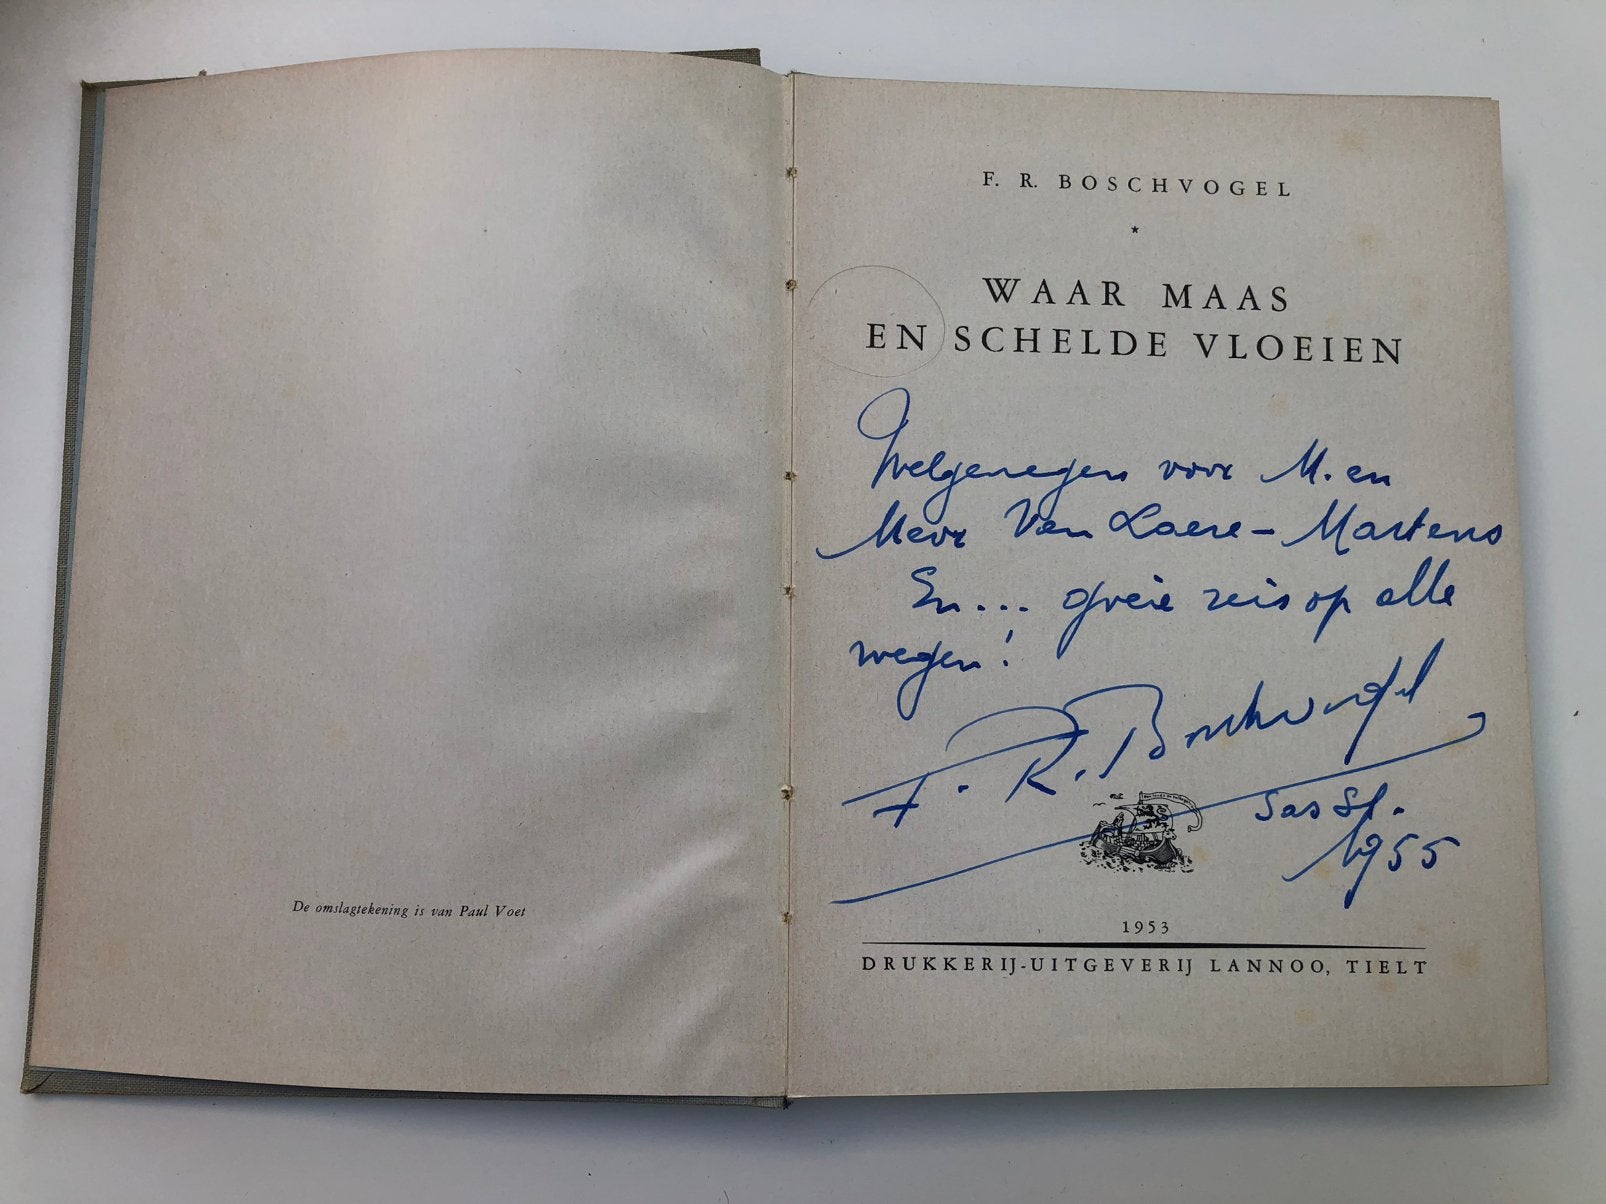 De omslagtekening is van Paul Voet
F. R. BOSCHVOGEL
*
WAAR MAAS
EN SCHELDE VLOEIEN
Welgenegen voor M. en
Mevr Van Laere - Martens
En... goeie reis op alle
wegen!
F. R. Boschvogel
Sas St.
1955
1953
DRUKKERIJ-UITGEVERIJ LANNOO, TIELT